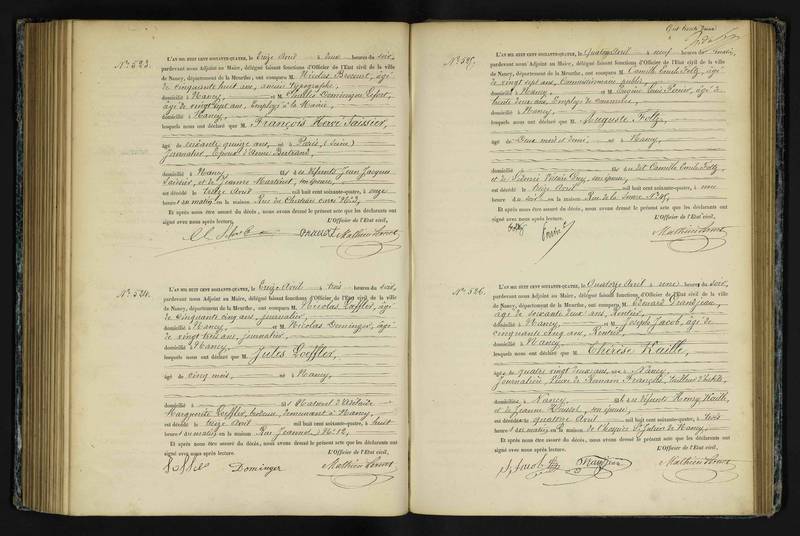 N° 523.
L'AN MIL HUIT CENT SOIXANTE-QUATRE, le treize Avril à deux heures du soir,
pardevant nous Adjoint au Maire, délégué faisant fonctions d'Officier de l'Etat civil de la ville
de Nancy, département de la Meurthe, ont comparu M. Nicolas âgé
de cinquante huit ans, ancien typographe,
domicilié à Nancy, et M. Dominique
âgé de vingt sept ans, Employé à la Mairie,
domicilié à Nancy,
lesquels nous ont déclaré que M. François Hervé Saissier,
âgé de soixante quinze ans, né à Paris, (Seine)
Journalier, Epoux d'Anne Bertrand,
domicilié à Nancy fils de défunts Jean Jacques
Saissier, et de Jeanne Martinet, son épouse,
est décédé le treize Avril mil huit cent soixante-quatre, à onze
heures du matin, en la maison Rue du
Et après nous être assuré du décès, nous avons dressé le présent acte que les déclarants ont
signé avec nous après lecture. L'Officier de l'Etat civil,
N° 524.
L'AN MIL HUIT CENT SOIXANTE-QUATRE, le treize Avril à trois heures du soir,
pardevant nous Adjoint au Maire, délégué faisant fonctions d'Officier de l'Etat civil de la ville
de Nancy, département de la Meurthe, ont comparu M. Nicolas Loeffler, âgé
de cinquante cinq ans, journalier,
domicilié à Nancy, et M. Nicolas Dominger, âgé
de vingt trois ans, journalier,
domicilié à Nancy,
lesquels nous ont déclaré que M. Jules Loeffler,
âgé de cinq mois, né à Nancy,
domicilié à fils Naturel d'Adélaïde
Marguerite Loeffler, demeurant à Nancy,
est décédé le treize Avril mil huit cent soixante-quatre, à huit
heures du matin, en la maison Rue Jeannot, N° 12,
Et après nous être assuré du décès, nous avons dressé le présent acte que les déclarants ont
signé avec nous après lecture. L'Officier de l'Etat civil,
Dominger
N° 525.
L'AN MIL HUIT CENT SOIXANTE-QUATRE, le quatorze Avril à neuf heures du matin,
pardevant nous Adjoint au Maire, délégué faisant fonctions d'Officier de l'Etat civil de la ville
de Nancy, département de la Meurthe, ont comparu M. Camille Emile Foltz, âgé
de vingt sept ans, Commissionnaire public,
domicilié à Nancy et M. Eugène Louis âgé de
trente deux ans, Employé de commerce,
domicilié à Nancy,
lesquels nous ont déclaré que M. Auguste Foltz,
âgé de Deux mois et demi né à Nancy,
domicilié à fils du dit Camille Emile Foltz,
et de son épouse,
est décédé le treize Avril mil huit cent soixante-quatre, à une
heure du soir, en la maison Rue de la N° 85,
Et après nous être assuré du décès, nous avons dressé le présent acte que les déclarants ont
signé avec nous après lecture. L'Officier de l'Etat civil,
N° 526.
L'AN MIL HUIT CENT SOIXANTE-QUATRE, le quatorze Avril à une heure du soir,
pardevant nous Adjoint au Maire, délégué faisant fonctions d'Officier de l'Etat civil de la ville
de Nancy, département de la Meurthe, ont comparu M. Edouard Grandjean,
âgé de soixante deux ans, Rentier,
domicilié à Nancy, et M. Joseph Jacob, âgé de
cinquante cinq ans, Rentier,
domicilié à Nancy,
lesquels nous ont déclaré que M. Thérèse Kaille,
âgé de quatre vingt deux ans, née à Nancy,
Journalière, Veuve de François, tailleur d'habits,
domiciliée, à Nancy, fille de défunts Henry Kaille,
et de Jeanne son épouse,
est décédée le quatorze Avril mil huit cent soixante-quatre, à trois
heures du matin, en la maison de l'hospice St Julien de Nancy,
Et après nous être assuré du décès, nous avons dressé le présent acte que les déclarants ont
signé avec nous après lecture. L'Officier de l'Etat civil,